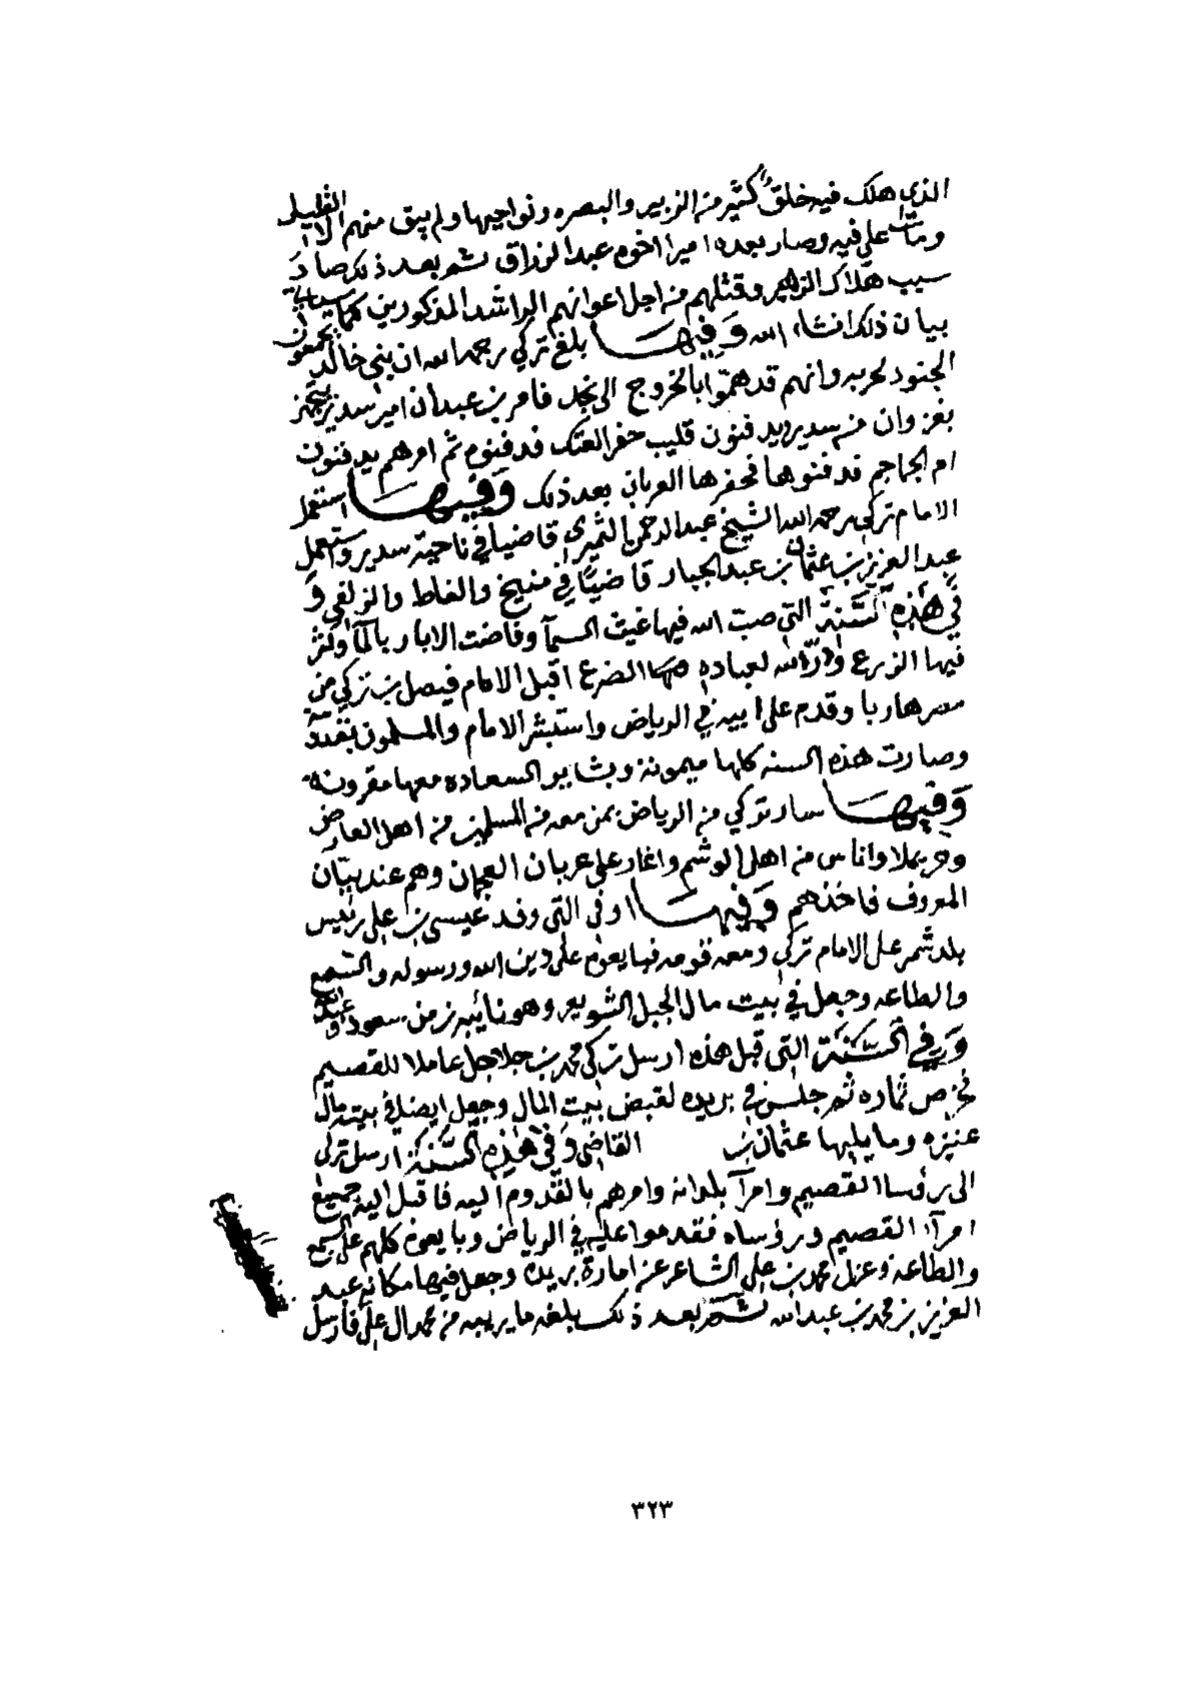 الذي هلك فيه خلقٌ كثير من الزبير والبصره ونواحيها ولم يبق منهم الا القليل
ومات علي فيه وصار بعده اميرا اخوه عبد الرزاق ثم بعد ذلك صار
سبب هلاك الزهير وقتلهم من اجل اعوانهم الراشد المذكورين كما سيأتي
بيان ذلك انشاء الله وَفيهَا بلغ تركي رحمه الله ان بني خالد يجمعون
الجنود لحربه وانهم قد همّوا بالخروج الى نجد فامر بن عبدان امير سدير يتجهز
بغزوان من سدير يدفنون قليب حفر العتك فدفنوه ثم امرهم يدفنون
ام الجماجم فدفنوها فحفرها العربان بعد ذلك وَفيهَا استعمل
الامام تركي رحمه الله الشيخ عبد الرحمن الثميري قاضيا في ناحية سدير واستعمل
عبد العزيز بن عثمان بن عبد الجبار قاضيًا في منيخ والغاط والزلفي وَ
في هَذِهِ السَّنَة التي صبّ الله فيها غيث السمآ وفاضت الابار بالمآ وكثر
فيها الزرع وادرّ الله لعباده الضرع اقبل الامام فيصل بن تركي من
مصر هاربا وقدم على ابيه في الرياض واستبشر الامام والمسلمون
وصارت هذه السنه كلها ميمونة وبشاير السعاده معها مقرونه
وَفيهَا سار تركي من الرياض بمن معه من المسلمين من اهل العارض
وحريملا واناس من اهل الوشم واغار على عربان العجمان وهم عند بنبان
المعروف فاخذهم وَفيهَا او في التي وفد عيسى بن علي رئيس
بلد شمر على الامام تركي ومعه قومه فبايعوه على دين الله ورسوله والسمع
والطاعه وجعل في بيت مال الجبل الشويعر وهو نائبه زمن سعود وعبد الله
وَفي السَّنَة التي قبل هذه ارسل تركي محمد بن جلاجل عاملا للقصيم
لخرص ثماره ثم جلس في بريده لقبض بيت المال وجعل ايضا في بيت مال
عنيزه وما يليها عثمان بن القاضي وَفي هَذِهِ السَّنَة ارسل تركي
الى رؤسا القصيم وامرآ بلدانه وامرهم بالقدوم اليه فاقبل اليه جميع
امرآء القصيم ورؤساه فقدموا عليه في الرياض وبايعوه كلهم على السمع
والطاعه وعزل محمد بن علي الشاعر عن امارة بريده وجعل فيها مكانه عبد
العزيز بن محمد بن عبد الله ثم بعد ذلك بلغه ما يريبه من محمد ال علي فارسل
٣٢٣